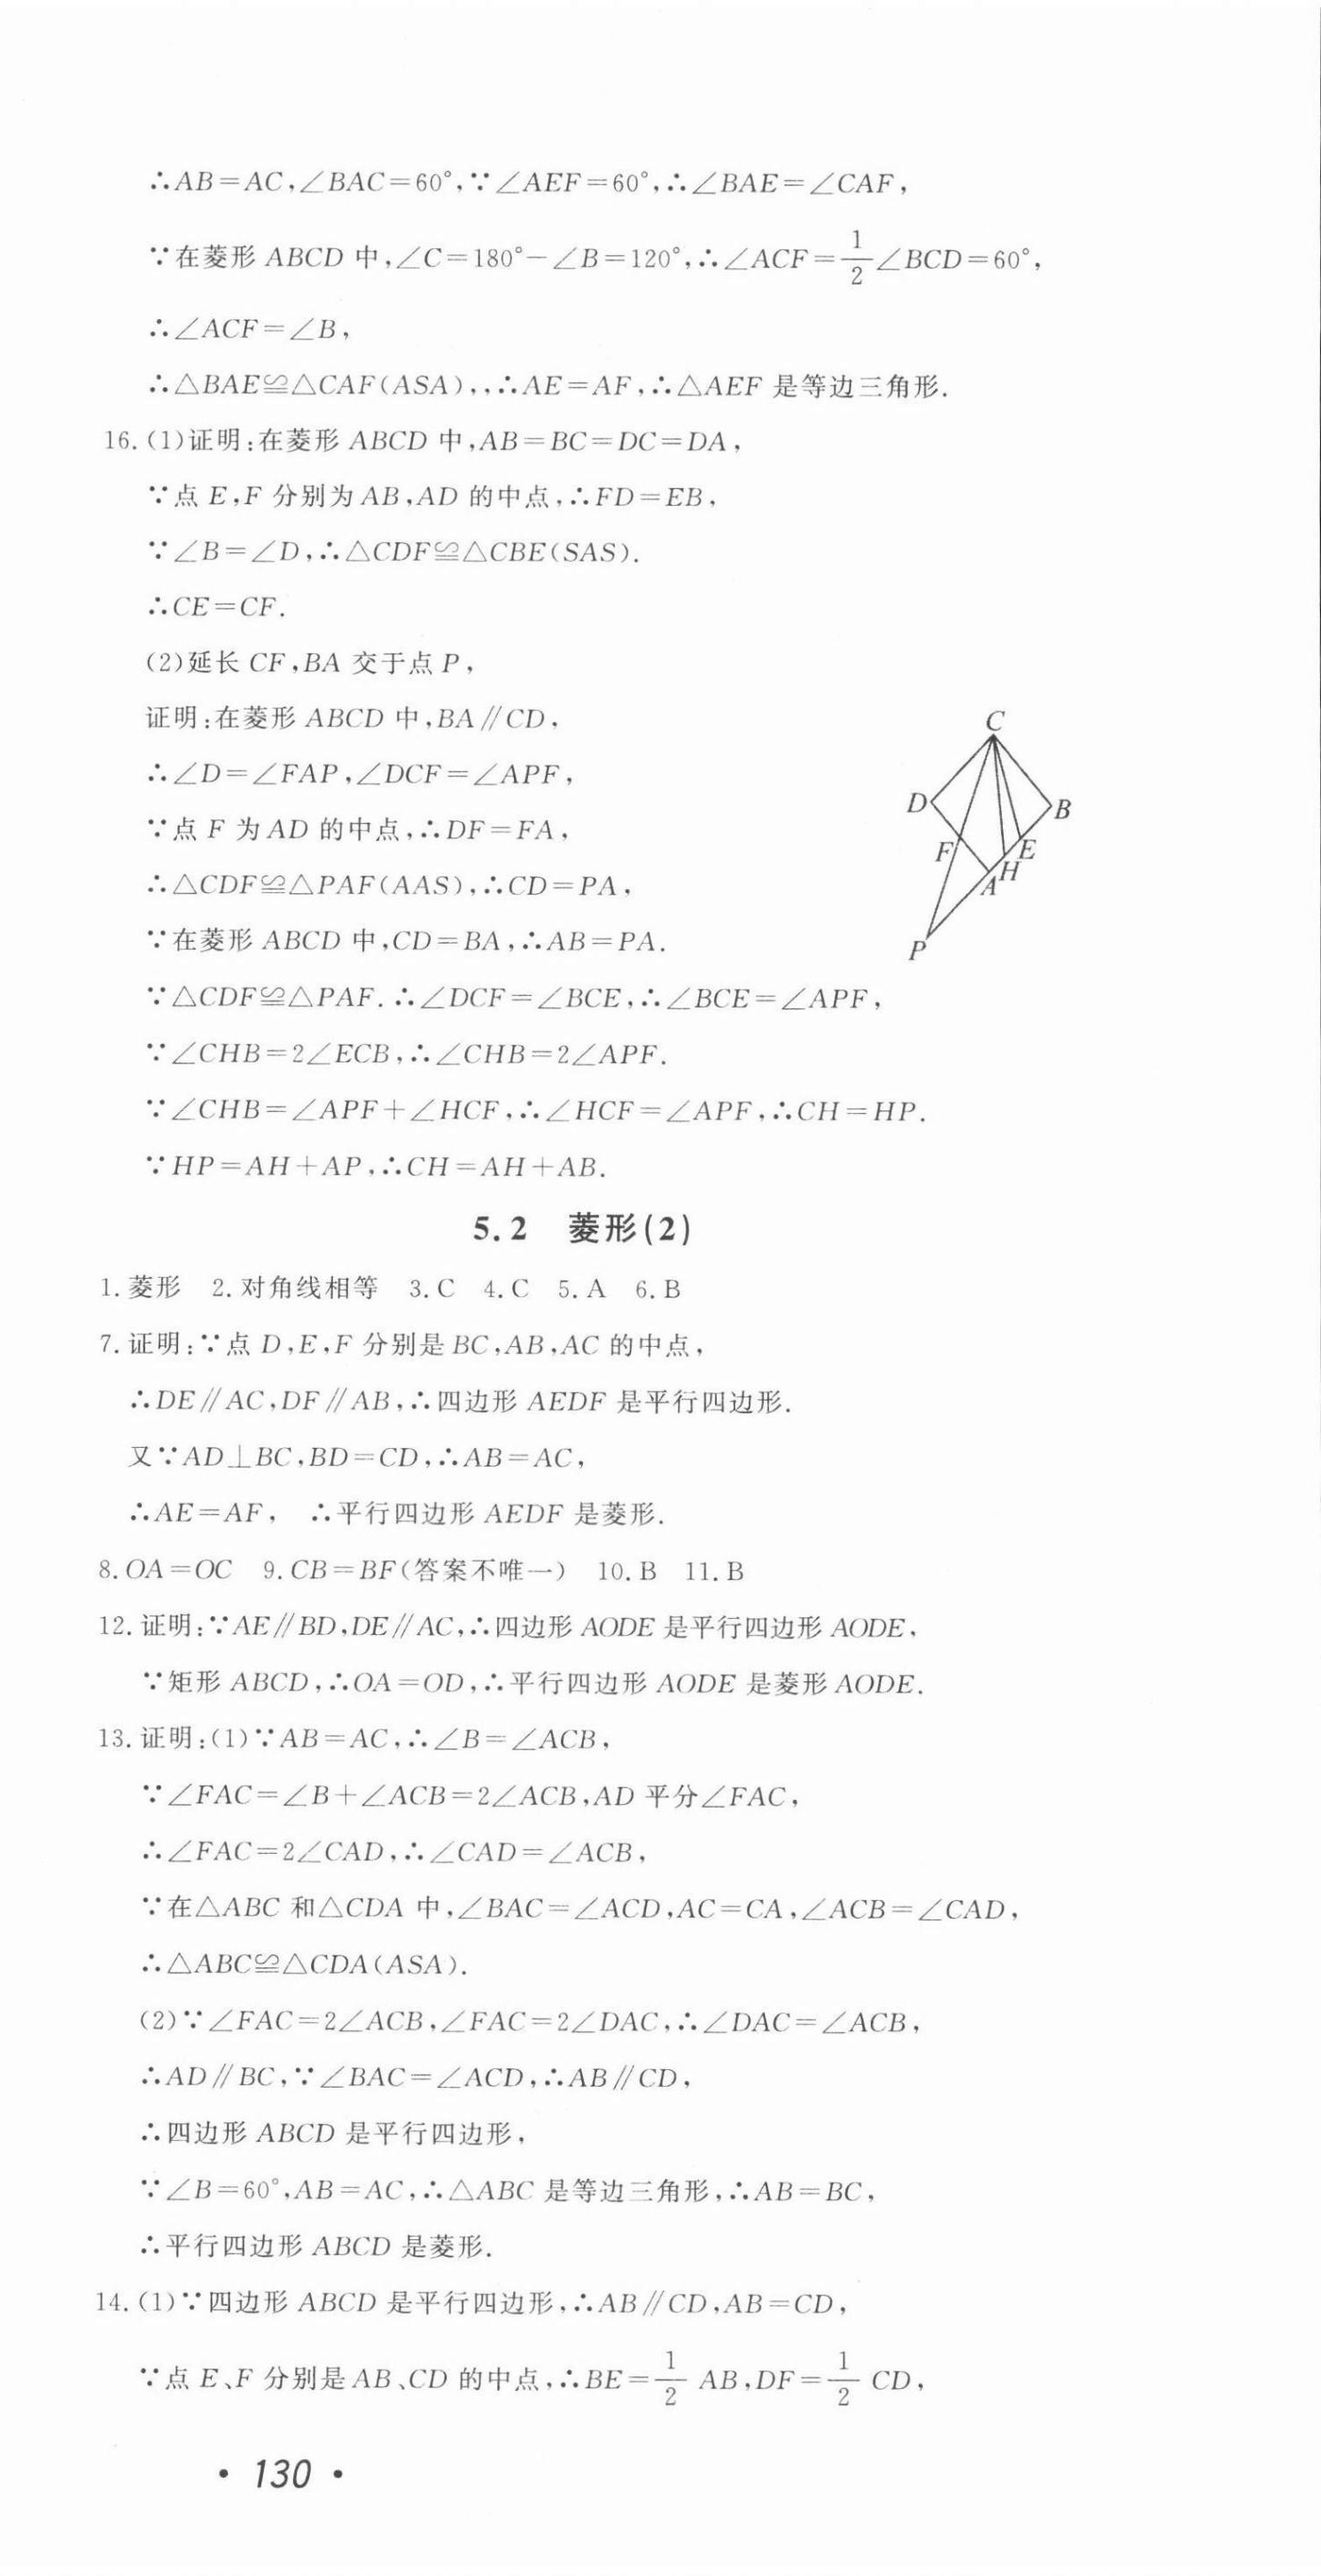 ∴AB=AC,∠BAC=60°,∵∠AEF=60°,∴∠BAE=∠CAF,
∵在菱形 ABCD 中,∠C=180°-∠B=120°,∴∠ACF=1/2∠BCD=60°,
∴∠ACF=∠B,
∴△BAE≌△CAF(ASA),,∴AE=AF,∴△AEF 是等边三角形.
16.(1)证明:在菱形 ABCD 中,AB=BC=DC=DA,
∵点 E,F 分别为 AB,AD 的中点,∴FD=EB,
∵∠B=∠D,∴△CDF≌△CBE(SAS).
∴CE=CF.
(2)延长 CF,BA 交于点 P,
证明:在菱形 ABCD 中,BA∥CD,
∴∠D=∠FAP,∠DCF=∠APF,
∵点 F 为 AD 的中点,∴DF=FA,
∴△CDF≌△PAF(AAS),∴CD=PA,
∵在菱形 ABCD 中,CD=BA,∴AB=PA.
∵△CDF≌△PAF.∴∠DCF=∠BCE,∴∠BCE=∠APF,
∵∠CHB=2∠ECB,∴∠CHB=2∠APF.
∵∠CHB=∠APF+∠HCF,∴∠HCF=∠APF,∴CH=HP.
∵HP=AH+AP,∴CH=AH+AB.
C
D
B
F
E
H
A
P
5.2 菱形(2)
1.菱形 2.对角线相等 3.C 4.C 5.A 6.B
7.证明:∵点 D,E,F 分别是 BC,AB,AC 的中点,
∴DE∥AC,DF∥AB,∴四边形 AEDF 是平行四边形.
又∵AD⊥BC,BD=CD,∴AB=AC,
∴AE=AF, ∴平行四边形 AEDF 是菱形.
8.OA=OC 9.CB=BF(答案不唯一) 10.B 11.B
12.证明:∵AE∥BD,DE∥AC,∴四边形 AODE 是平行四边形 AODE,
∵矩形 ABCD,∴OA=OD,∴平行四边形 AODE 是菱形 AODE.
13.证明:(1)∵AB=AC,∴∠B=∠ACB,
∵∠FAC=∠B+∠ACB=2∠ACB,AD 平分∠FAC,
∴∠FAC=2∠CAD,∴∠CAD=∠ACB,
∵在△ABC 和△CDA 中,∠BAC=∠ACD,AC=CA,∠ACB=∠CAD,
∴△ABC≌△CDA(ASA).
(2)∵∠FAC=2∠ACB,∠FAC=2∠DAC,∴∠DAC=∠ACB,
∴AD∥BC,∵∠BAC=∠ACD,∴AB∥CD,
∴四边形 ABCD 是平行四边形,
∵∠B=60°,AB=AC,∴△ABC 是等边三角形,∴AB=BC,
∴平行四边形 ABCD 是菱形.
14.(1)∵四边形 ABCD 是平行四边形,∴AB∥CD,AB=CD,
∵点 E、F 分别是 AB、CD 的中点,∴BE=1/2 AB,DF=1/2 CD,
· 130 ·